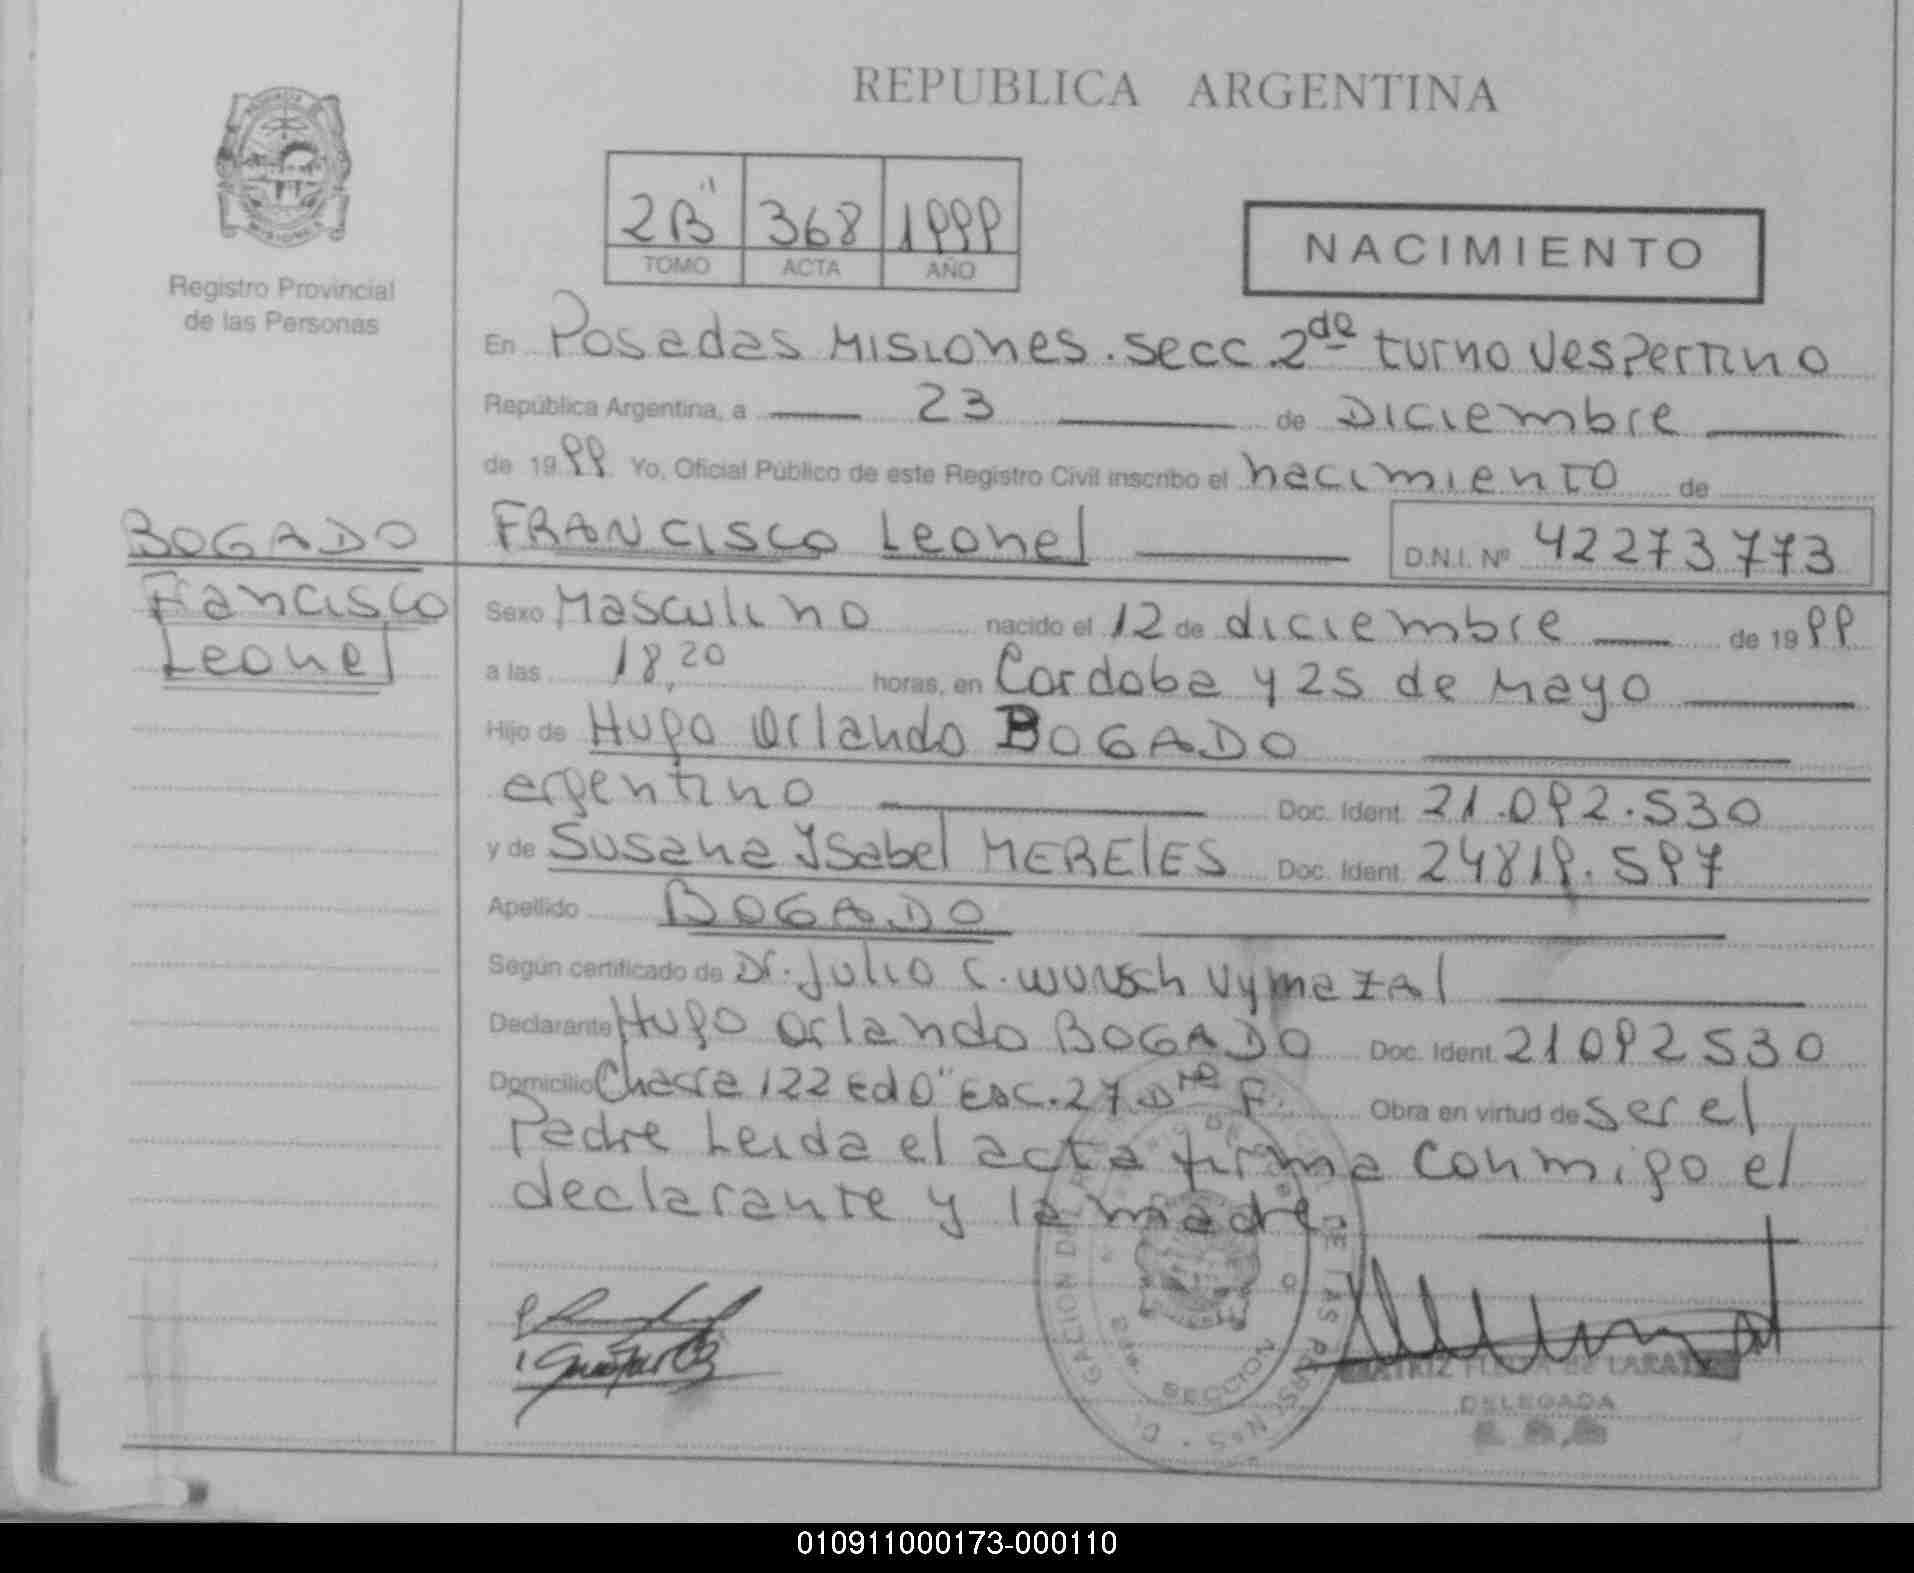 REPUBLICA ARGENTINA
Registro Provincial
de las Personas
2B" 368 1999
TOMO ACTA AÑO
NACIMIENTO
En Posadas Misiones. secc. 2da turno Vespertino
República Argentina, a 23 de Diciembre
de 1999 Yo, Oficial Público de este Registro Civil inscribo el nacimiento de
BOGADO
Francisco
Leonel
FRANCISCO Leonel D.N.I. Nº 42273773
Sexo Masculino nacido el 12 de diciembre de 1999
a las 18,20 horas, en Cordoba y 25 de Mayo
Hijo de Hugo Orlando BOGADO
argentino Doc. Ident. 21.092.530
y de Susana Ysabel MERELES Doc. Ident. 24819.597
Apellido BOGADO
Según certificado de Dr. Julio C. Wunsch Vymazal
Declarante Hugo Orlando BOGADO Doc. Ident. 21092530
Domicilio Chacra 122 Ed O" Esc. 27 Dto F. Obra en virtud de ser el
Padre Leida el acta firma conmigo el
declarante y la madre
SECCION
DELEGADA
010911000173-000110